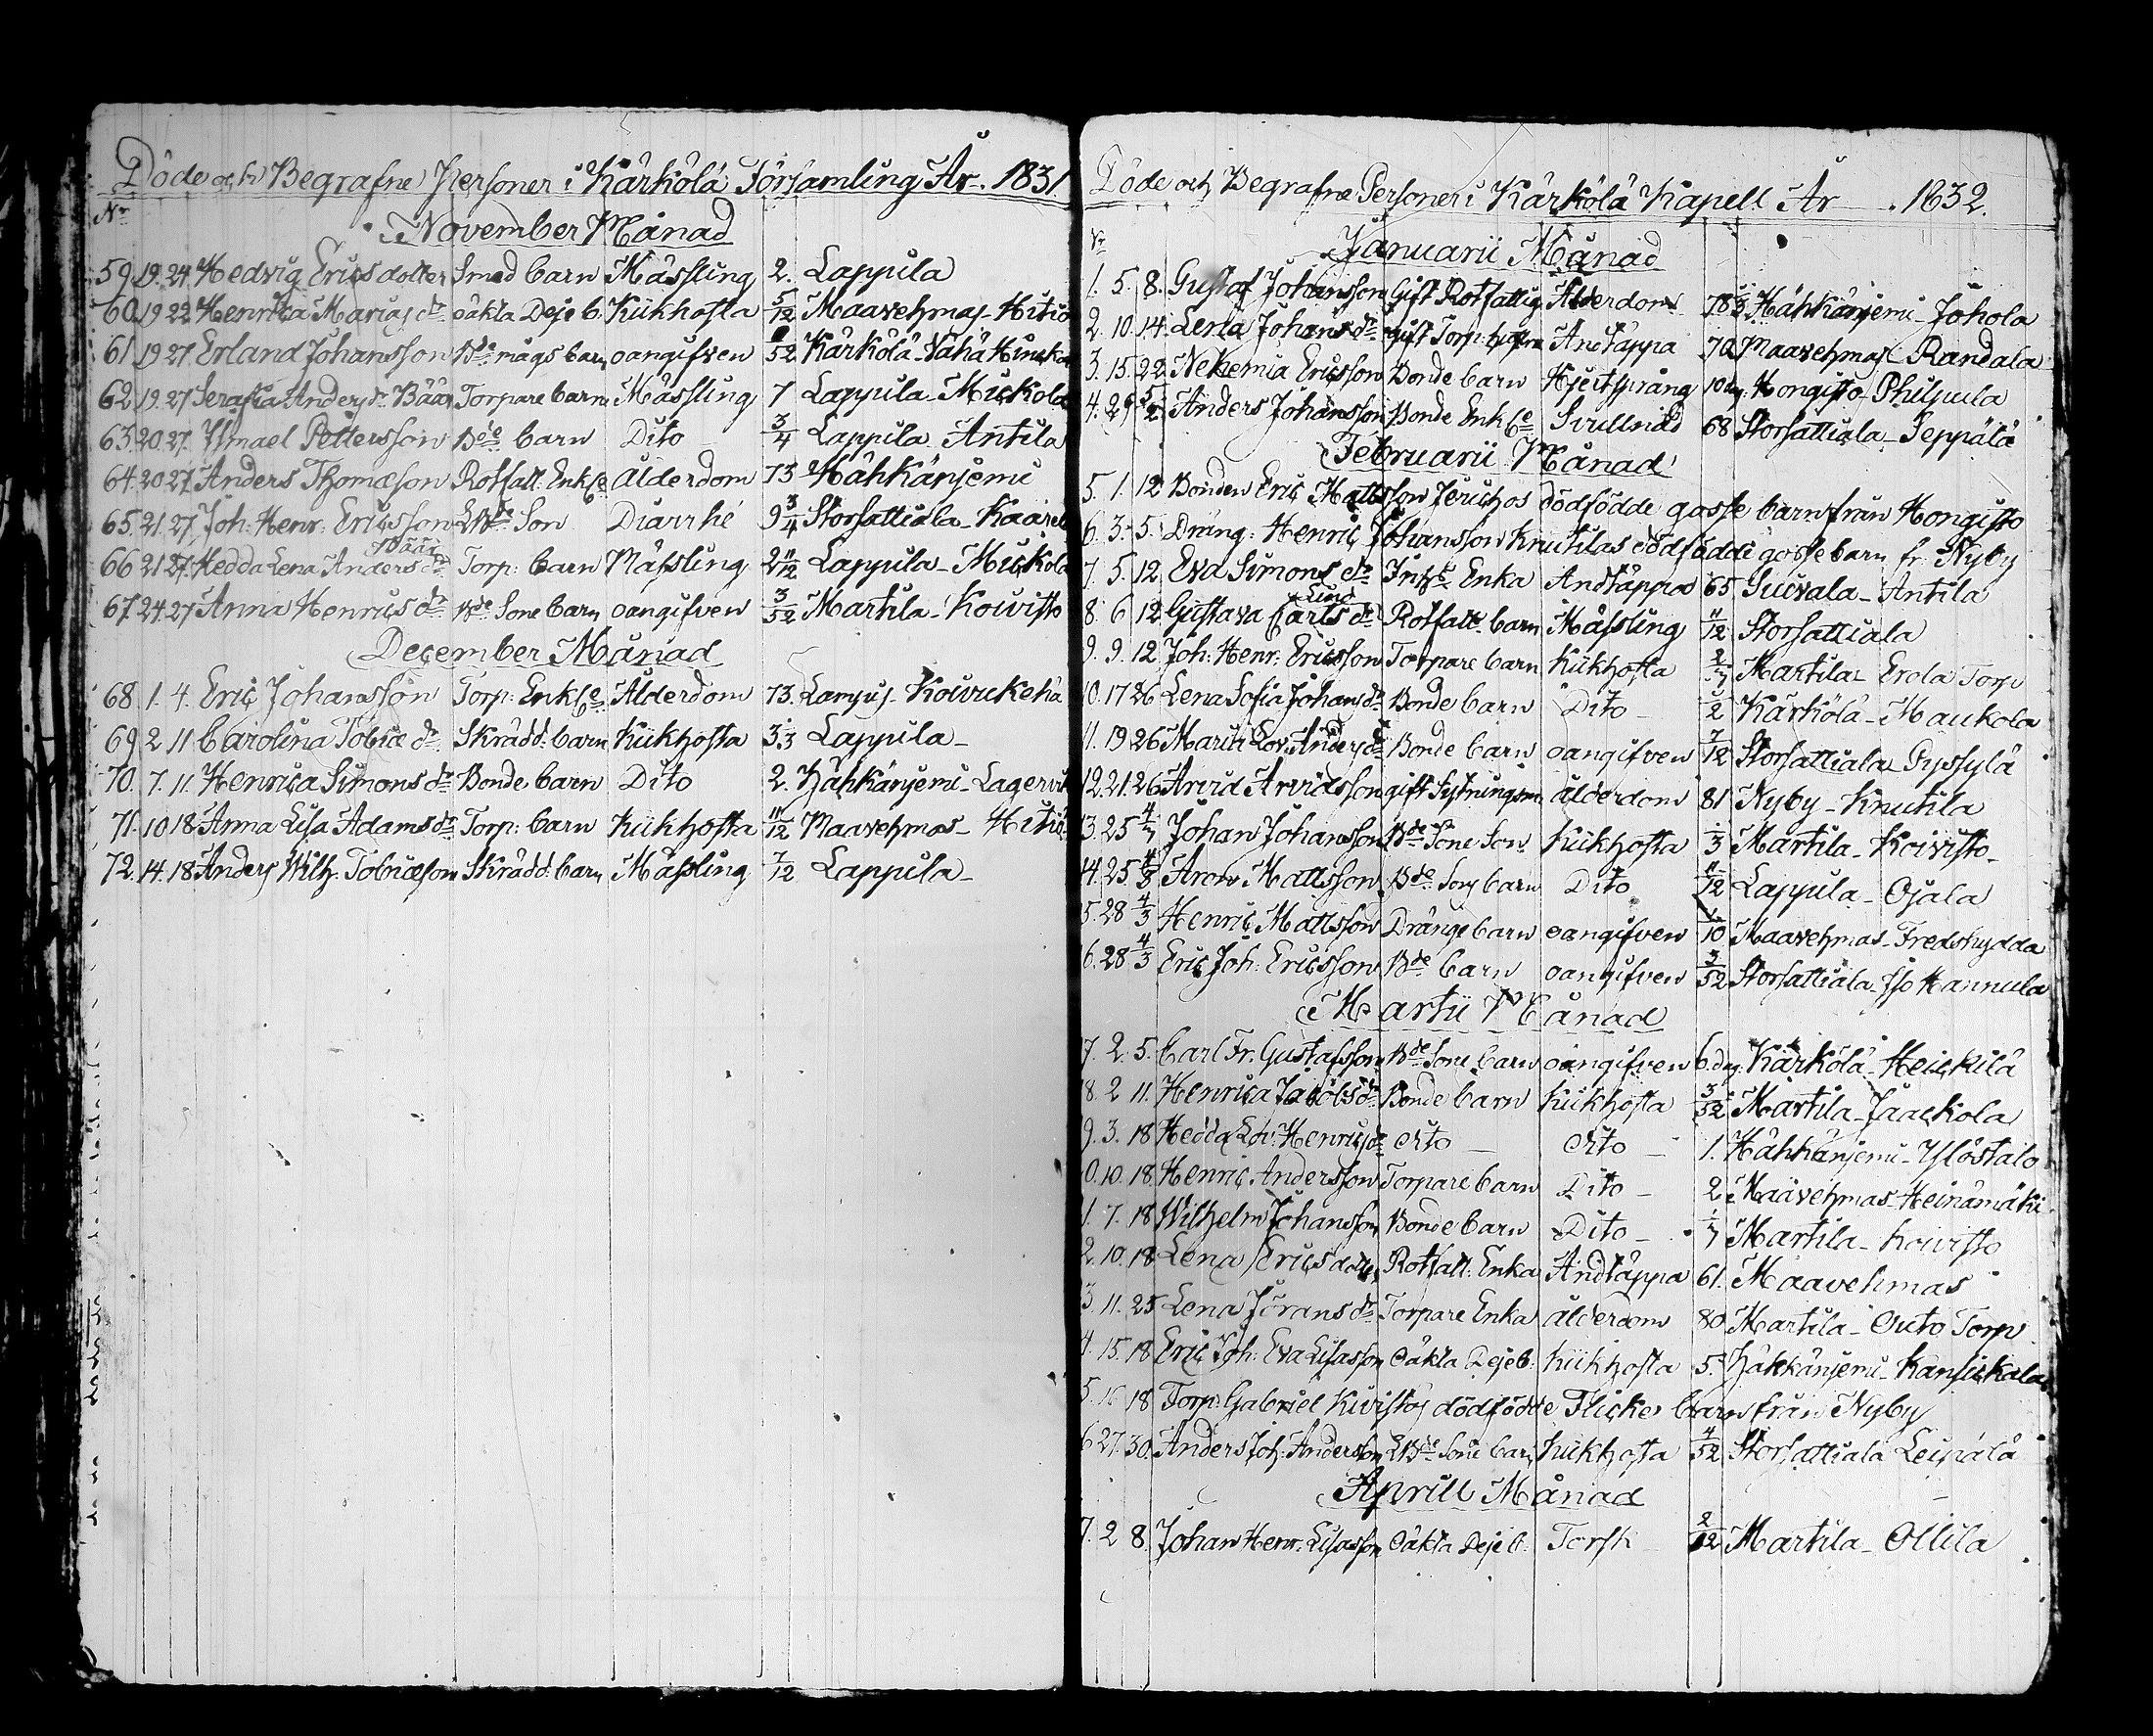 Döde och Begrafne Personer i Kärkölä Församling År. 1831
No
November Månad
59. 19. 24 Hedvig Ericsdotter Smed barn Mässling 2. Lappila
60. 19 22 Henrica Mariæ dr oäkta Deje b. Kikhosta 5/12 Maavehmas - Hitiä
61 19 27. Erland Johansson Bde mågs barn oangifven /52 Kärkölä - Vähä Hinckala
62 19. 27 Serafia Anders dr Bäär Torpare barn Mässling 7 Lappila - Mickola
63. 20. 27. Ismael Pettersson Bde barn Dito 3/4 Lappila - Antila
64. 20 27. Anders Thomæson Rotfatt. Enkl: Ålderdom 73 Hähkäniemi
65. 21 27. Joh: Henr: Ericsson EBde Son Diarrhé 9 3/4 Storsattiala - Kaarela
Bäär
66 21 27. Hedda Lena Anders dr Torp: barn Mässling 2 11/12 Lappila - Mickola
67. 24. 27 Anna Henrics dr Bde Sone barn oangifven 3/52 Martila - Koivisto
December Månad
68. 1. 4. Eric Johansson Torp: Enkl: Ålderdom 73. Lampus - Koivukehä
69. 2 11 Carolina Tobiæ dr Skrädd: barn Kikhosta 3 Lappila -
70. 7. 11. Henrica Simons dr Bonde barn Dito 2. Hähkäniemi -
71. 10 18. Anna Lisa Adams dr Torp: barn Kikhosta 11/12 Maavehmas - Hitiä
72. 14. 18 Anders Wilh. Tobiæson Skrädd: barn Mässling 7/12 Lappila -
Döde och Begrafne Personer i Kärkölä Kapell År 1832.
Nr
Januarii Månad
1. 5. 8. Gustaf Johansson Gift Rotfattig Ålderdom 78 Hähkäniemi - Johola
2. 10. 14. Lena Johans dr gift Torp: Andtäppa 70 Maavehmas - Randala
3. 15. 22 Nehemia Ericsson Bonde barn Hjertsprång 10 dag. Hongisto - Philpula
4. 29 5/2 Anders Johansson Bonde Enkl: Svullnad 68 Storsattiala - Seppälä
Februarii Månad
5. 1. 12 Bonden Eric Mattsson Jerichos dödfödde gosse barn från Hongisto
6. 3. 5. Dräng: Henric Johansson Knutilas dödfödde gosse barn fr. Nyby
7. 5. 12. Eva Simons dr Enka Andtäppa 65 Suovala - Antila
Lind
8. 6 12 Gustava Carls dr Rotfatt. barn Mässling 11/12 Storsattiala
9. 9. 12 Joh: Henr: Ericsson Torpare barn Kikhosta 2/7 Martila - Erola Torp
10. 17 26 Lena Sofia Johans dr Bonde barn Dito - 1/2 Kärkölä - Maukola
11. 19 26 Maria Lov: Anders dr Bonde barn oangifven 7/12 Storsattiala - Pyssylä
12. 21. 26 Arvid Arvidsson gift Sytningsm. ålderdom 81 Nyby - Knutila
13. 25 4/ Johan Johansson Bde Sone Son Kikhosta 1/3 Martila - Koivisto -
14. 25. 4/3 Aron Mattsson Bde Sons barn Dito 11/12 Lappila - Ojala
15. 28 4/3 Henric Mattsson Dränge barn oangifven 1/10 Maavehmas - Fredshydda
16. 28 4/3 Eric Joh: Ericsson Bde barn oangifven 3/52 Storsattiala - Iso Hannula
Martii Månad
7. 2. 5. Carl Fr. Gustafsson Bde Sone barn oangifven 6. dag. Kärkölä - Heickilä
8. 2 11. Henrica Jacobs dr Bonde barn Kikhosta 3/52 Martila - Jaackola
9. 3. 18 Hedda Lov: Henrics dr dito - dito - 1. Hähkäniemi - Ylöstalo
0. 10. 18. Henric Andersson Torpare barn Dito - 2 Maavehmas - Heinämäki
1. 7. 18 Wilhelm Johansson Bonde barn Dito - 1/7 Martila - Koivisto
2. 10. 18 Lena Ericsdotter Rotfatt: Enka Andtäppa 61. Maavehmas
3 11. 25 Lena Jörans dr Torpare Enka ålderdom 80 Martila - Outo Torp
4. 15. 18 Eric Joh: Eva Lisasson Oäkta Deje b. Kikhosta 5. Hähkäniemi - Kansickala
5. 16 18 Torp: Gabriel Kivistös dödfödde Flicke barn från Nyby
6 27. 30 Anders Joh: Andersson EBde Sone barn Kikhosta 4/52 Storsattiala Leipälä
Aprill Månad
7. 2 8. Johan Henr: Lisasson Oäkta Deje b. Torsk - 2/12 Martila - Ollila